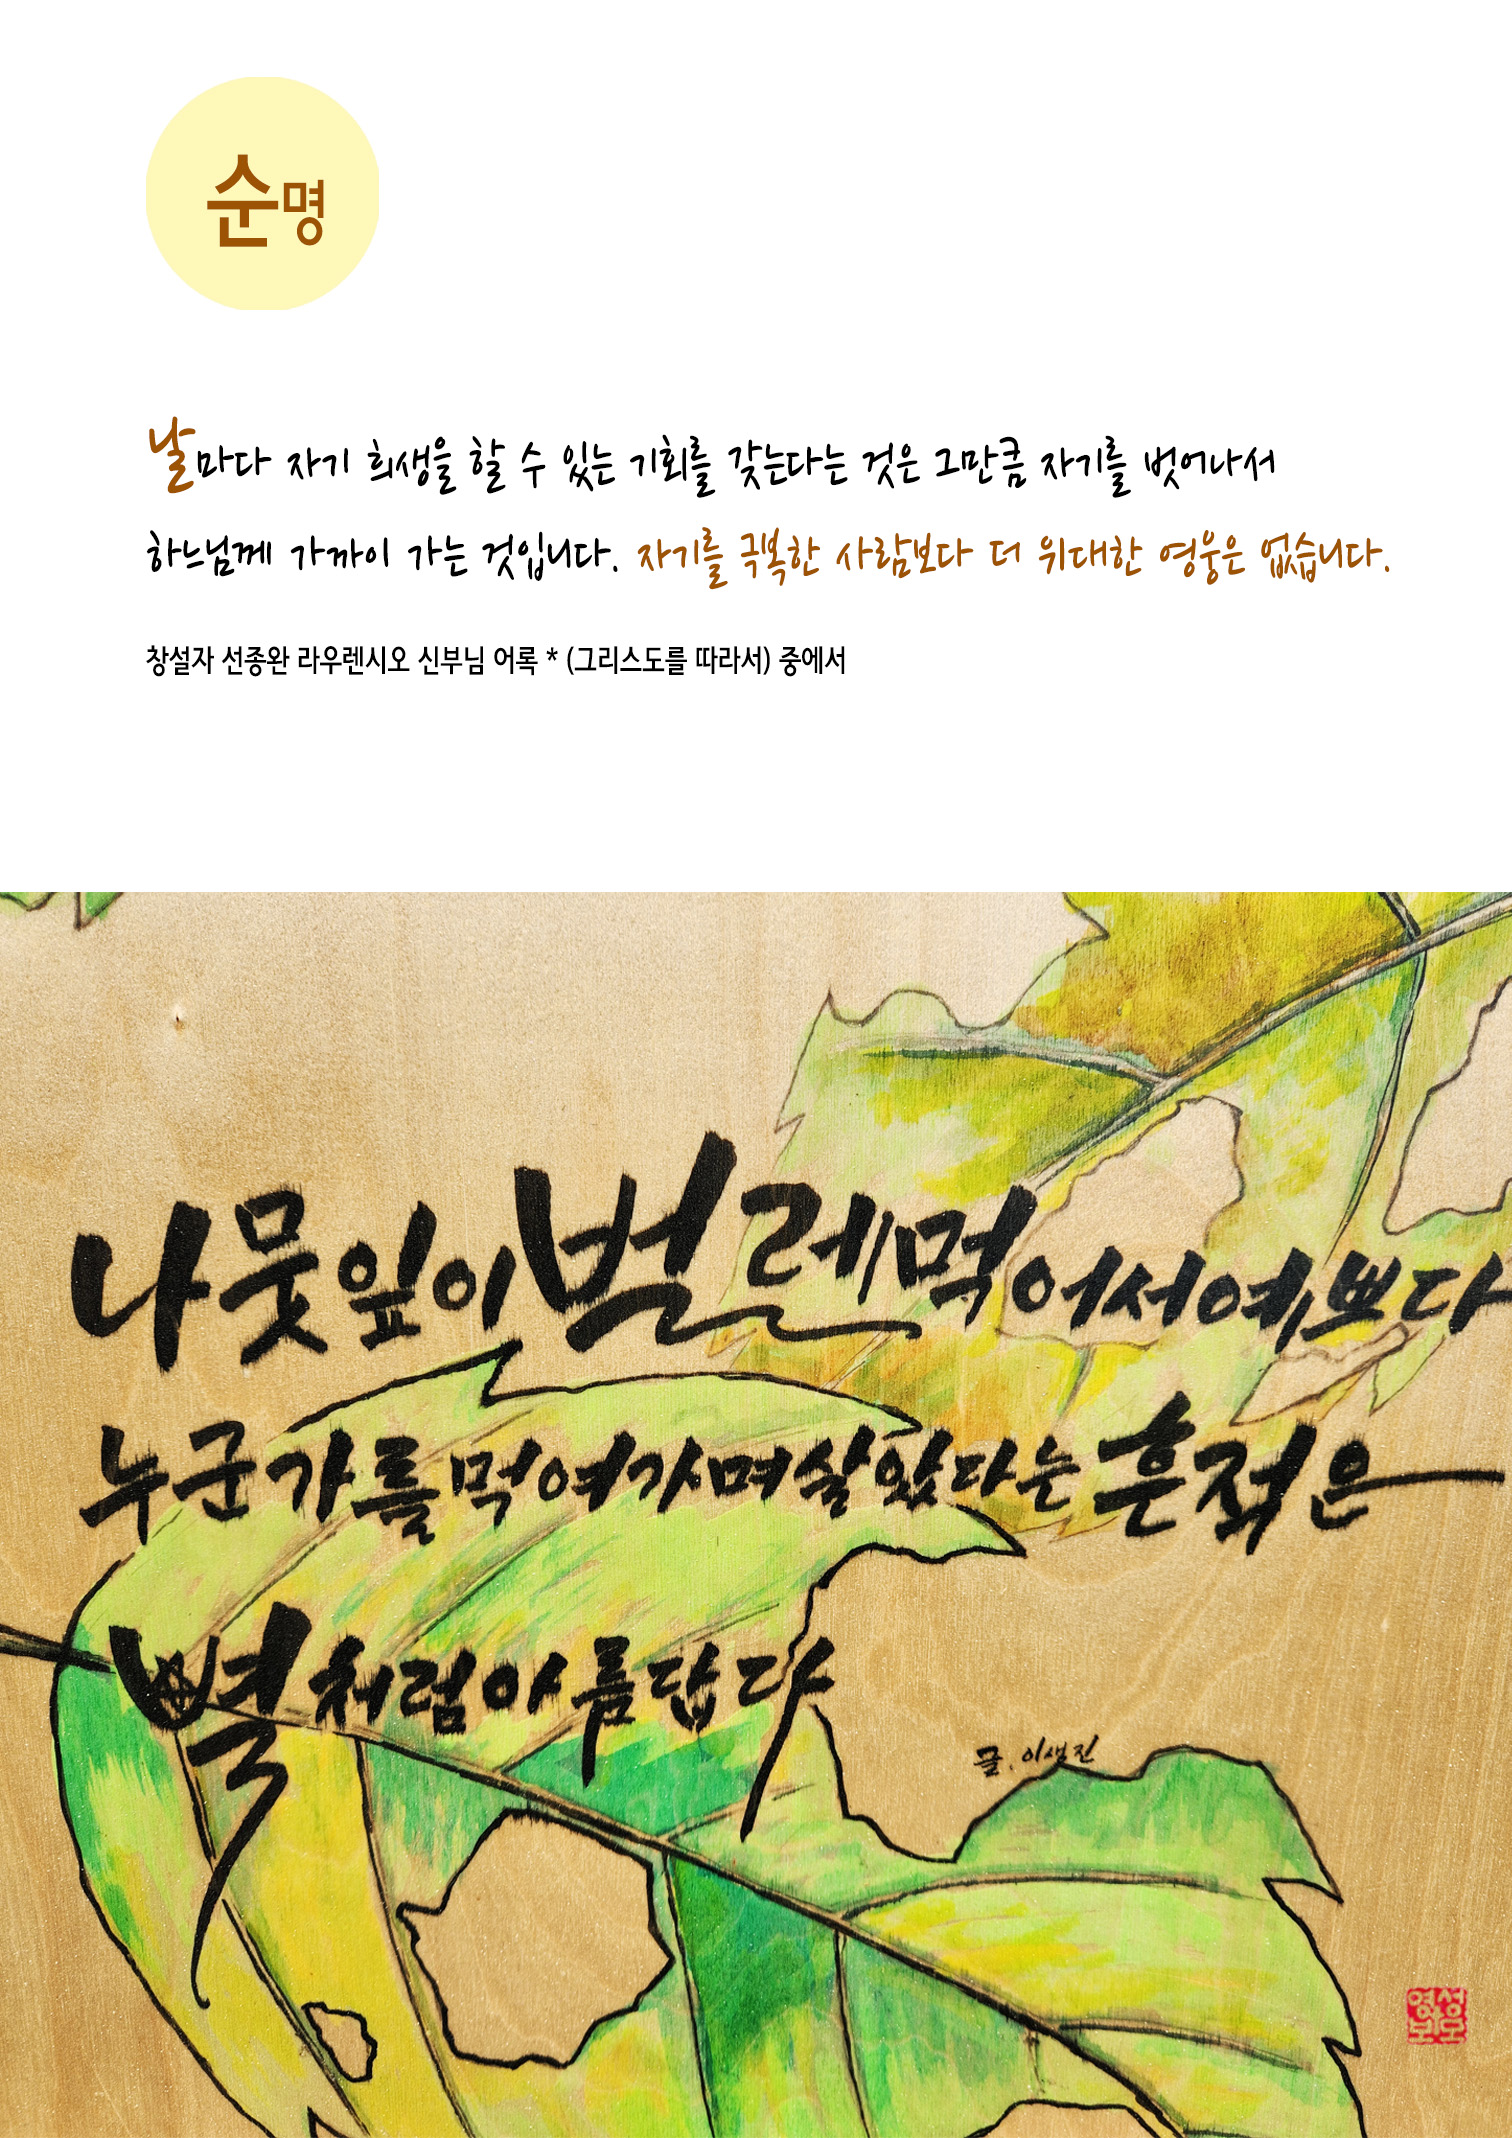 순명
날마다 자기 희생을 할 수 있는 기회를 갖는다는 것은 그만큼 자기를 벗어나서
하느님께 가까이 가는 것입니다. 자기를 극복한 사람보다 더 위대한 영웅은 없습니다.
창설자 선종완 라우렌시오 신부님 어록 * (그리스도를 따라서) 중에서
나뭇잎이 벌레 먹어서 예쁘다
누군가를 먹여가며 살았다는 흔적은
별처럼 아름답다
글. 이생진